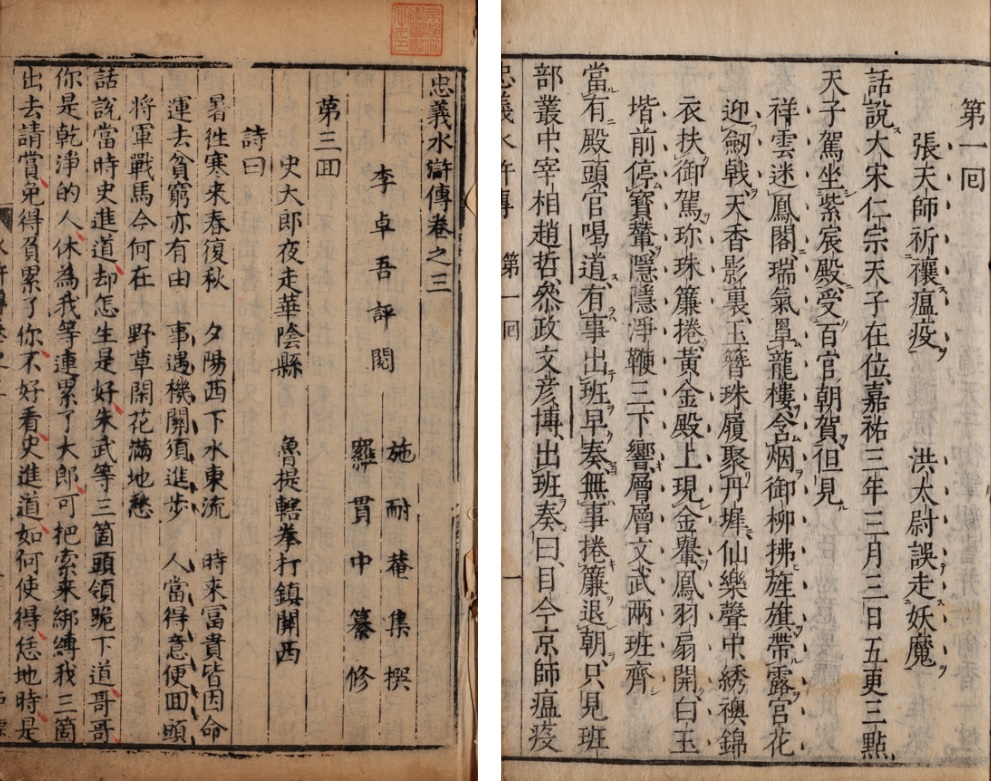 忠義水滸傳卷之三
李卓吾評閱
施耐菴集撰
羅貫中纂修
第三囬
史大郎夜走華陰縣　魯提轄拳打鎮關西
詩曰
暑徃寒来春復秋　夕陽西下水東流　時来冨貴皆因命
運去貧窮亦有由　事遇機關須進步　人當得意便囬頭
將軍戰馬今何在　野草閑花滿地愁
話說當時史進道却怎生是好朱武等三箇頭領跪下道哥哥
你是乾淨的人休為我等連累了大郎可把索来綁縛我三箇
出去請賞免得負累了你不好看史進道如何使得恁地時是
第一囘
張天師祈禳瘟疫　洪太尉誤走妖魔
話說大宋仁宗天子在位嘉祐三年三月三日五更三點
天子駕坐紫宸殿受百官朝賀但見
祥雲迷鳳閣瑞氣罩龍樓含烟御柳拂旌旗帶露宮花
迎劔戟天香影裏玉簪珠履聚丹墀仙樂聲中綉襖錦
衣扶御駕珎珠簾捲黃金殿上現金轝鳳羽扇開白玉
堦前停寶輦隱隱淨鞭三下響層層文武兩班齊
當有殿頭官喝道有事出班早奏無事捲簾退朝只見班
部叢中宰相趙哲叅政文彦博出班奏曰目今京師瘟疫
忠義水滸傳　第一囘　一